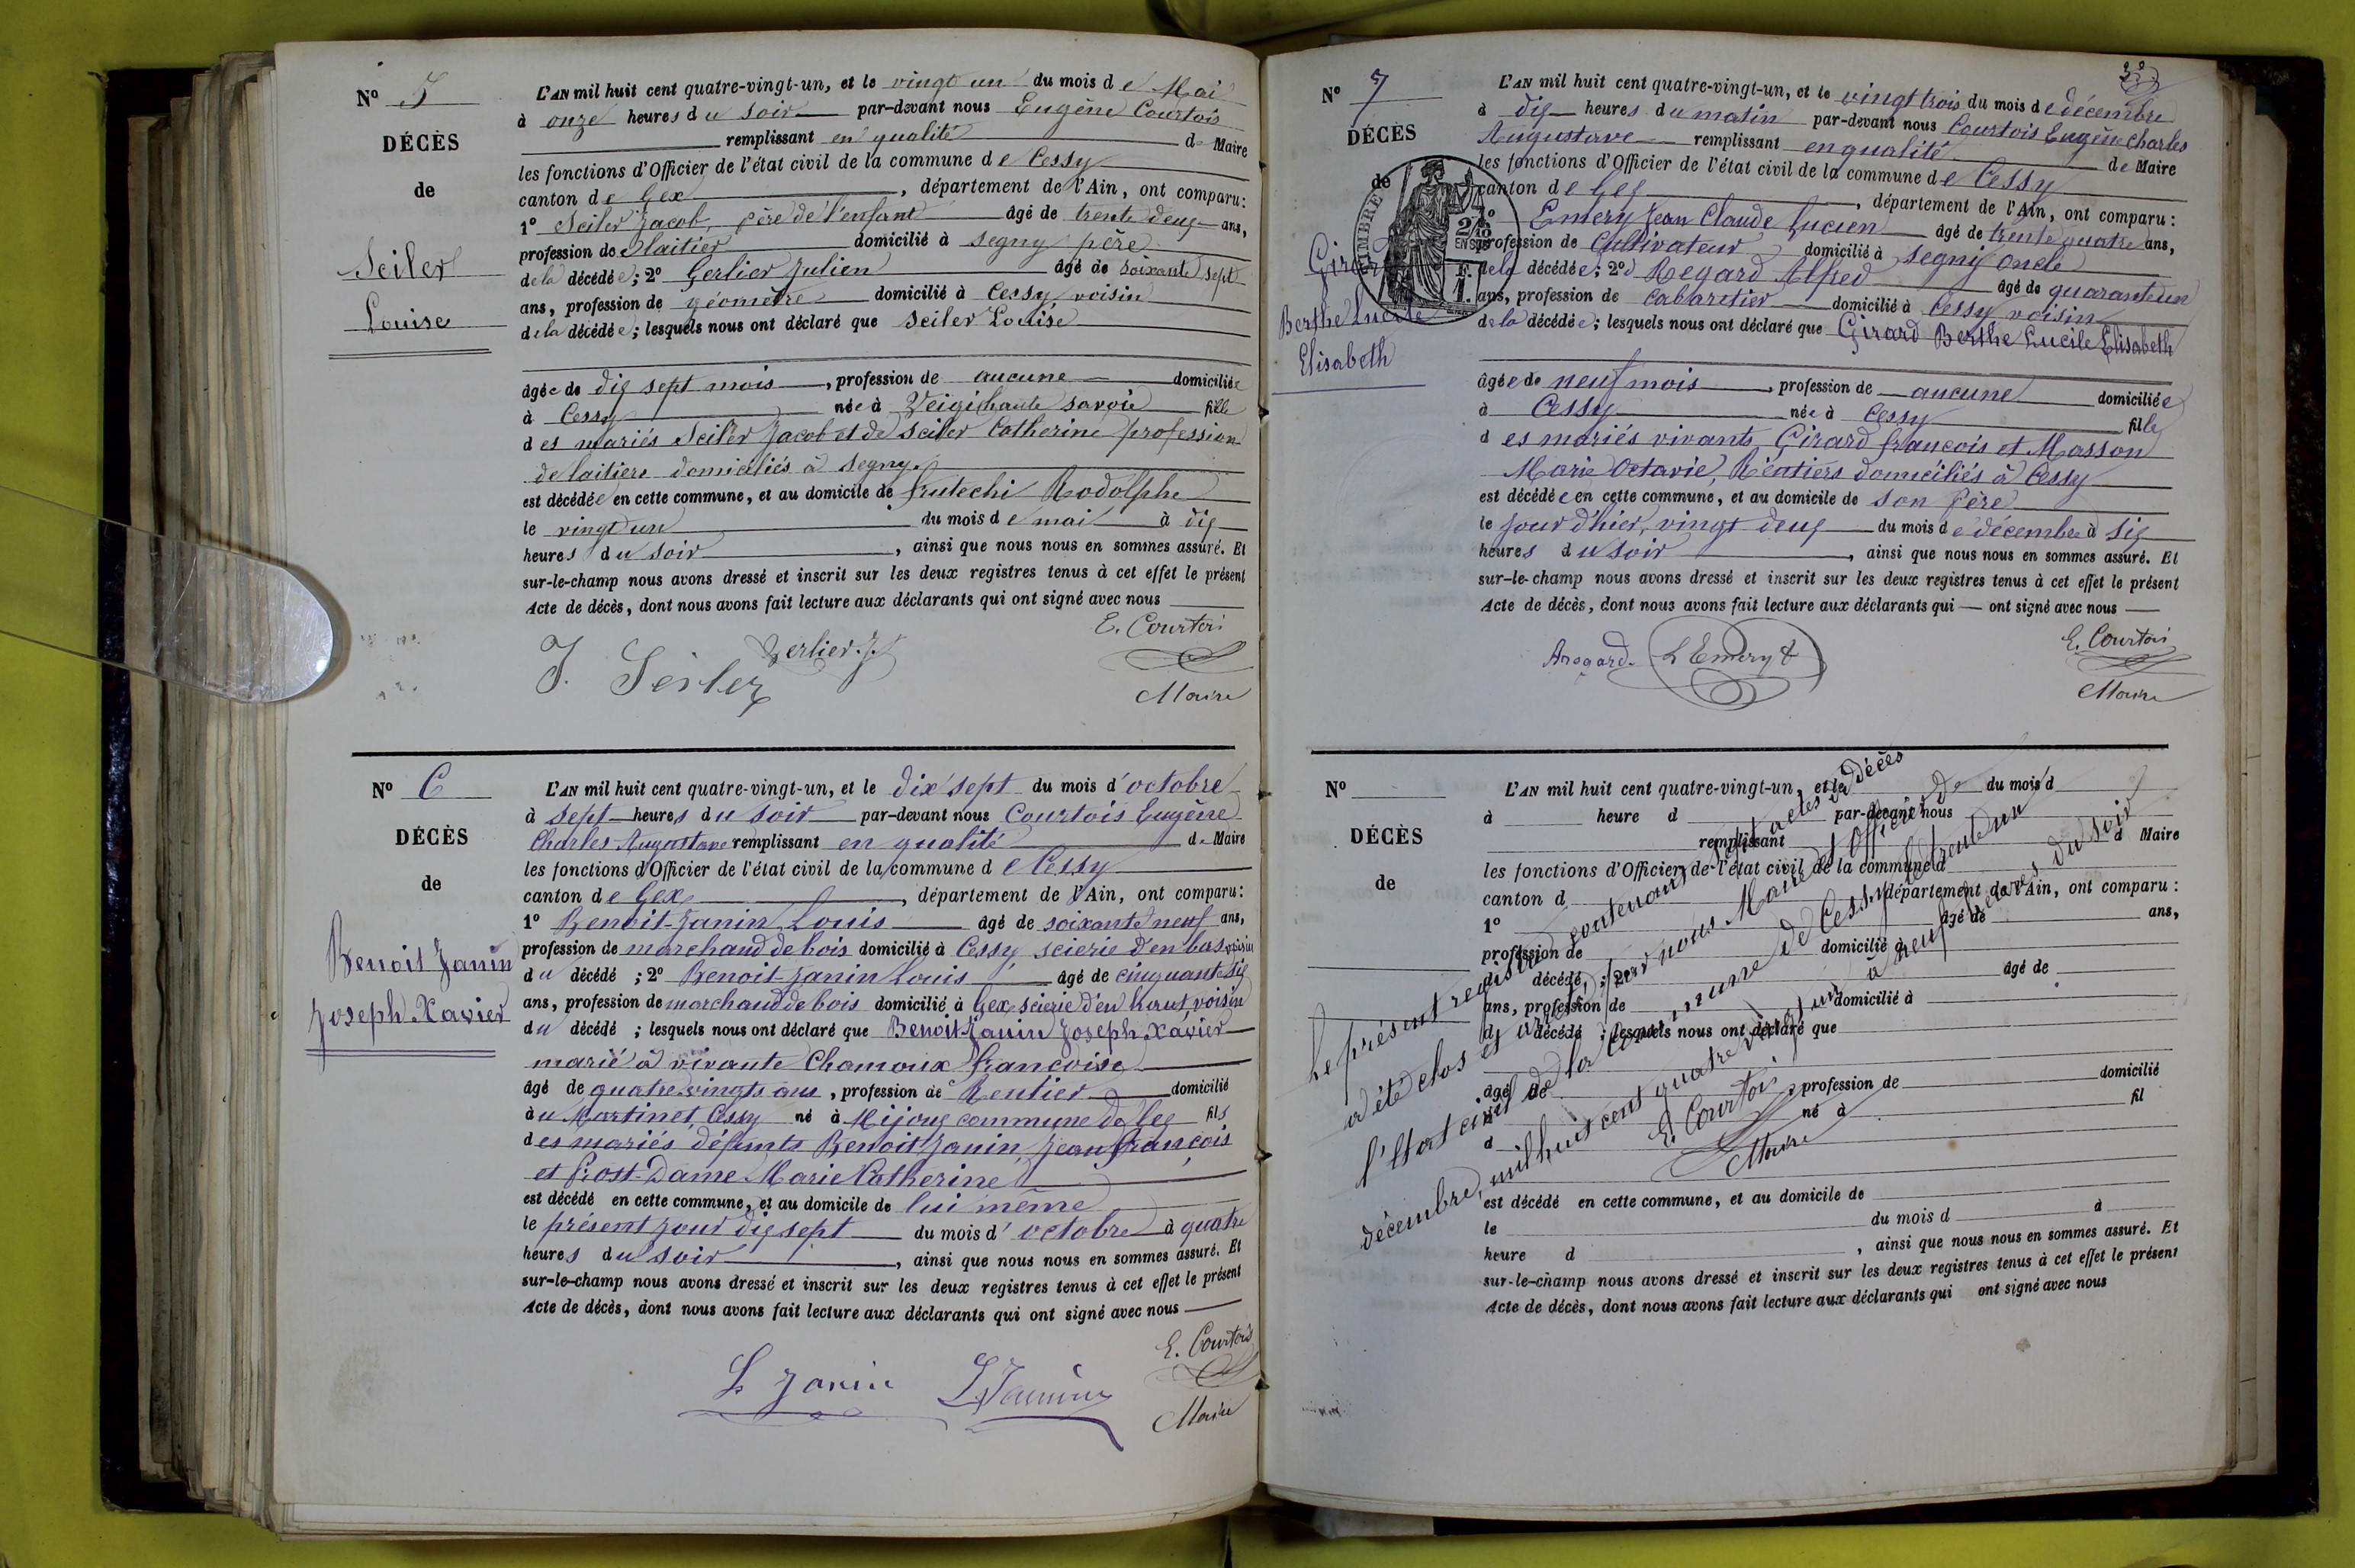 N° 5
DÉCÈS
de
Seiler
Louise
L'AN mil huit cent quatre-vingt-un, et le vingt un du mois de Mai
à onze heures du soir par-devant nous Eugène Courtois
remplissant en qualité de Maire
les fonctions d'Officier de l'état civil de la commune de Cessy
canton de Gex, département de l'Ain, ont comparu:
1° Seiler Jacob, père de l'enfant âgé de trente deux ans,
profession de laitier domicilié à Segny père
de la décédée; 2° Gerlier Julien âgé de soixante sept
ans, profession de géomètre domicilié à Cessy voisin
de la décédée; lesquels nous ont déclaré que Seiler Louise
âgée de dix sept mois, profession de aucune domiciliée
à Cessy née à Veigi haute savoie fille
des mariés Seiler Jacob et de Seiler Catherine profession
de laitiers domiciliés à Segny.
est décédée en cette commune, et au domicile de frutechi Rodolphe
le vingt un du mois de mai à dix
heures du soir, ainsi que nous nous en sommes assuré. Et
sur-le-champ nous avons dressé et inscrit sur les deux registres tenus à cet effet le présent
Acte de décès, dont nous avons fait lecture aux déclarants qui ont signé avec nous
E. Courtois
J. Seiler Gerlier. J.
Maire
N° 6
DÉCÈS
de
Benoit Janin
Joseph Xavier
L'AN mil huit cent quatre-vingt-un, et le dix sept du mois d'octobre
à sept heures du soir par-devant nous Courtois Eugène
Charles Augustave remplissant en qualité de Maire
les fonctions d'Officier de l'état civil de la commune de Cessy
canton de Gex, département de l'Ain, ont comparu:
1° Benoit-Janin Louis âgé de soixante neuf ans,
profession de marchand de bois domicilié à Cessy scierie d'en bas voisin
du décédé; 2° Benoit-Janin Louis âgé de cinquante six
ans, profession de marchand de bois domicilié à Gex scierie d'en haut, voisin
du décédé; lesquels nous ont déclaré que Benoit Janin Joseph Xavier
marié à vivante Chamoux françoise
âgé de quatre vingts ans, profession de Rentier domicilié
au Martinet, Cessy né à Mijoux commune de Gex fils
des mariés défunts Benoit Janin, Jean François
et Prost-Dame Marie Catherine
est décédé en cette commune, et au domicile de lui même
le présent jour dix sept du mois d'octobre à quatre
heures du soir, ainsi que nous nous en sommes assuré. Et
sur-le-champ nous avons dressé et inscrit sur les deux registres tenus à cet effet le présent
Acte de décès, dont nous avons fait lecture aux déclarants qui ont signé avec nous
E. Courtois
L Janin L. Janin
Maire
N° 7
DÉCÈS
de
Girard
Berthe Lucile
Elisabeth
TIMBRE
2/10
EN SUS
1 F.
L'AN mil huit cent quatre-vingt-un, et le vingt trois du mois de décembre
à dix heures du matin par-devant nous Courtois Eugène Charles
Augustave remplissant en qualité de Maire
les fonctions d'Officier de l'état civil de la commune de Cessy
canton de Gex, département de l'Ain, ont comparu:
1° Emery Jean Claude Lucien âgé de trente quatre ans,
profession de Cultivateur domicilié à Segny oncle
de la décédée; 2° Regard Alfred âgé de quarante un
ans, profession de Cabaretier domicilié à Cessy voisin
de la décédée; lesquels nous ont déclaré que Girard Berthe Lucile Elisabeth
âgée de neuf mois, profession de aucune domiciliée
à Cessy née à Cessy fille
des mariés vivants, Girard françois et Masson
Marie Octavie, Rentiers domiciliés à Cessy
est décédée en cette commune, et au domicile de son Père
le jour d'hier, vingt deux du mois de décembre à six
heures du soir, ainsi que nous nous en sommes assuré. Et
sur-le-champ nous avons dressé et inscrit sur les deux registres tenus à cet effet le présent
Acte de décès, dont nous avons fait lecture aux déclarants qui ont signé avec nous
E. Courtois
A regard. L Emery
Maire
N°
DÉCÈS
de
L'AN mil huit cent quatre-vingt-un, et le du mois d
à heure d par-devant nous
remplissant d Maire
les fonctions d'Officier de l'état civil de la commune d
canton d, département de l'Ain, ont comparu:
1° âgé de ans,
profession de domicilié à
d décédé; 2° âgé de
ans, profession de domicilié à
d décédé; lesquels nous ont déclaré que
âgé de, profession de domicilié
à né à fil
d
est décédé en cette commune, et au domicile de
le du mois d à
heure d, ainsi que nous nous en sommes assuré. Et
sur-le-champ nous avons dressé et inscrit sur les deux registres tenus à cet effet le présent
Acte de décès, dont nous avons fait lecture aux déclarants qui ont signé avec nous
Le présent registre contenant sept actes de décès
a été clos et arrêté par nous Maire et Officier de
l'État civil de la commune de Cessy le trente un
décembre, mil huit cent quatre vingt un à neuf heures du soir
E. Courtois
Maire